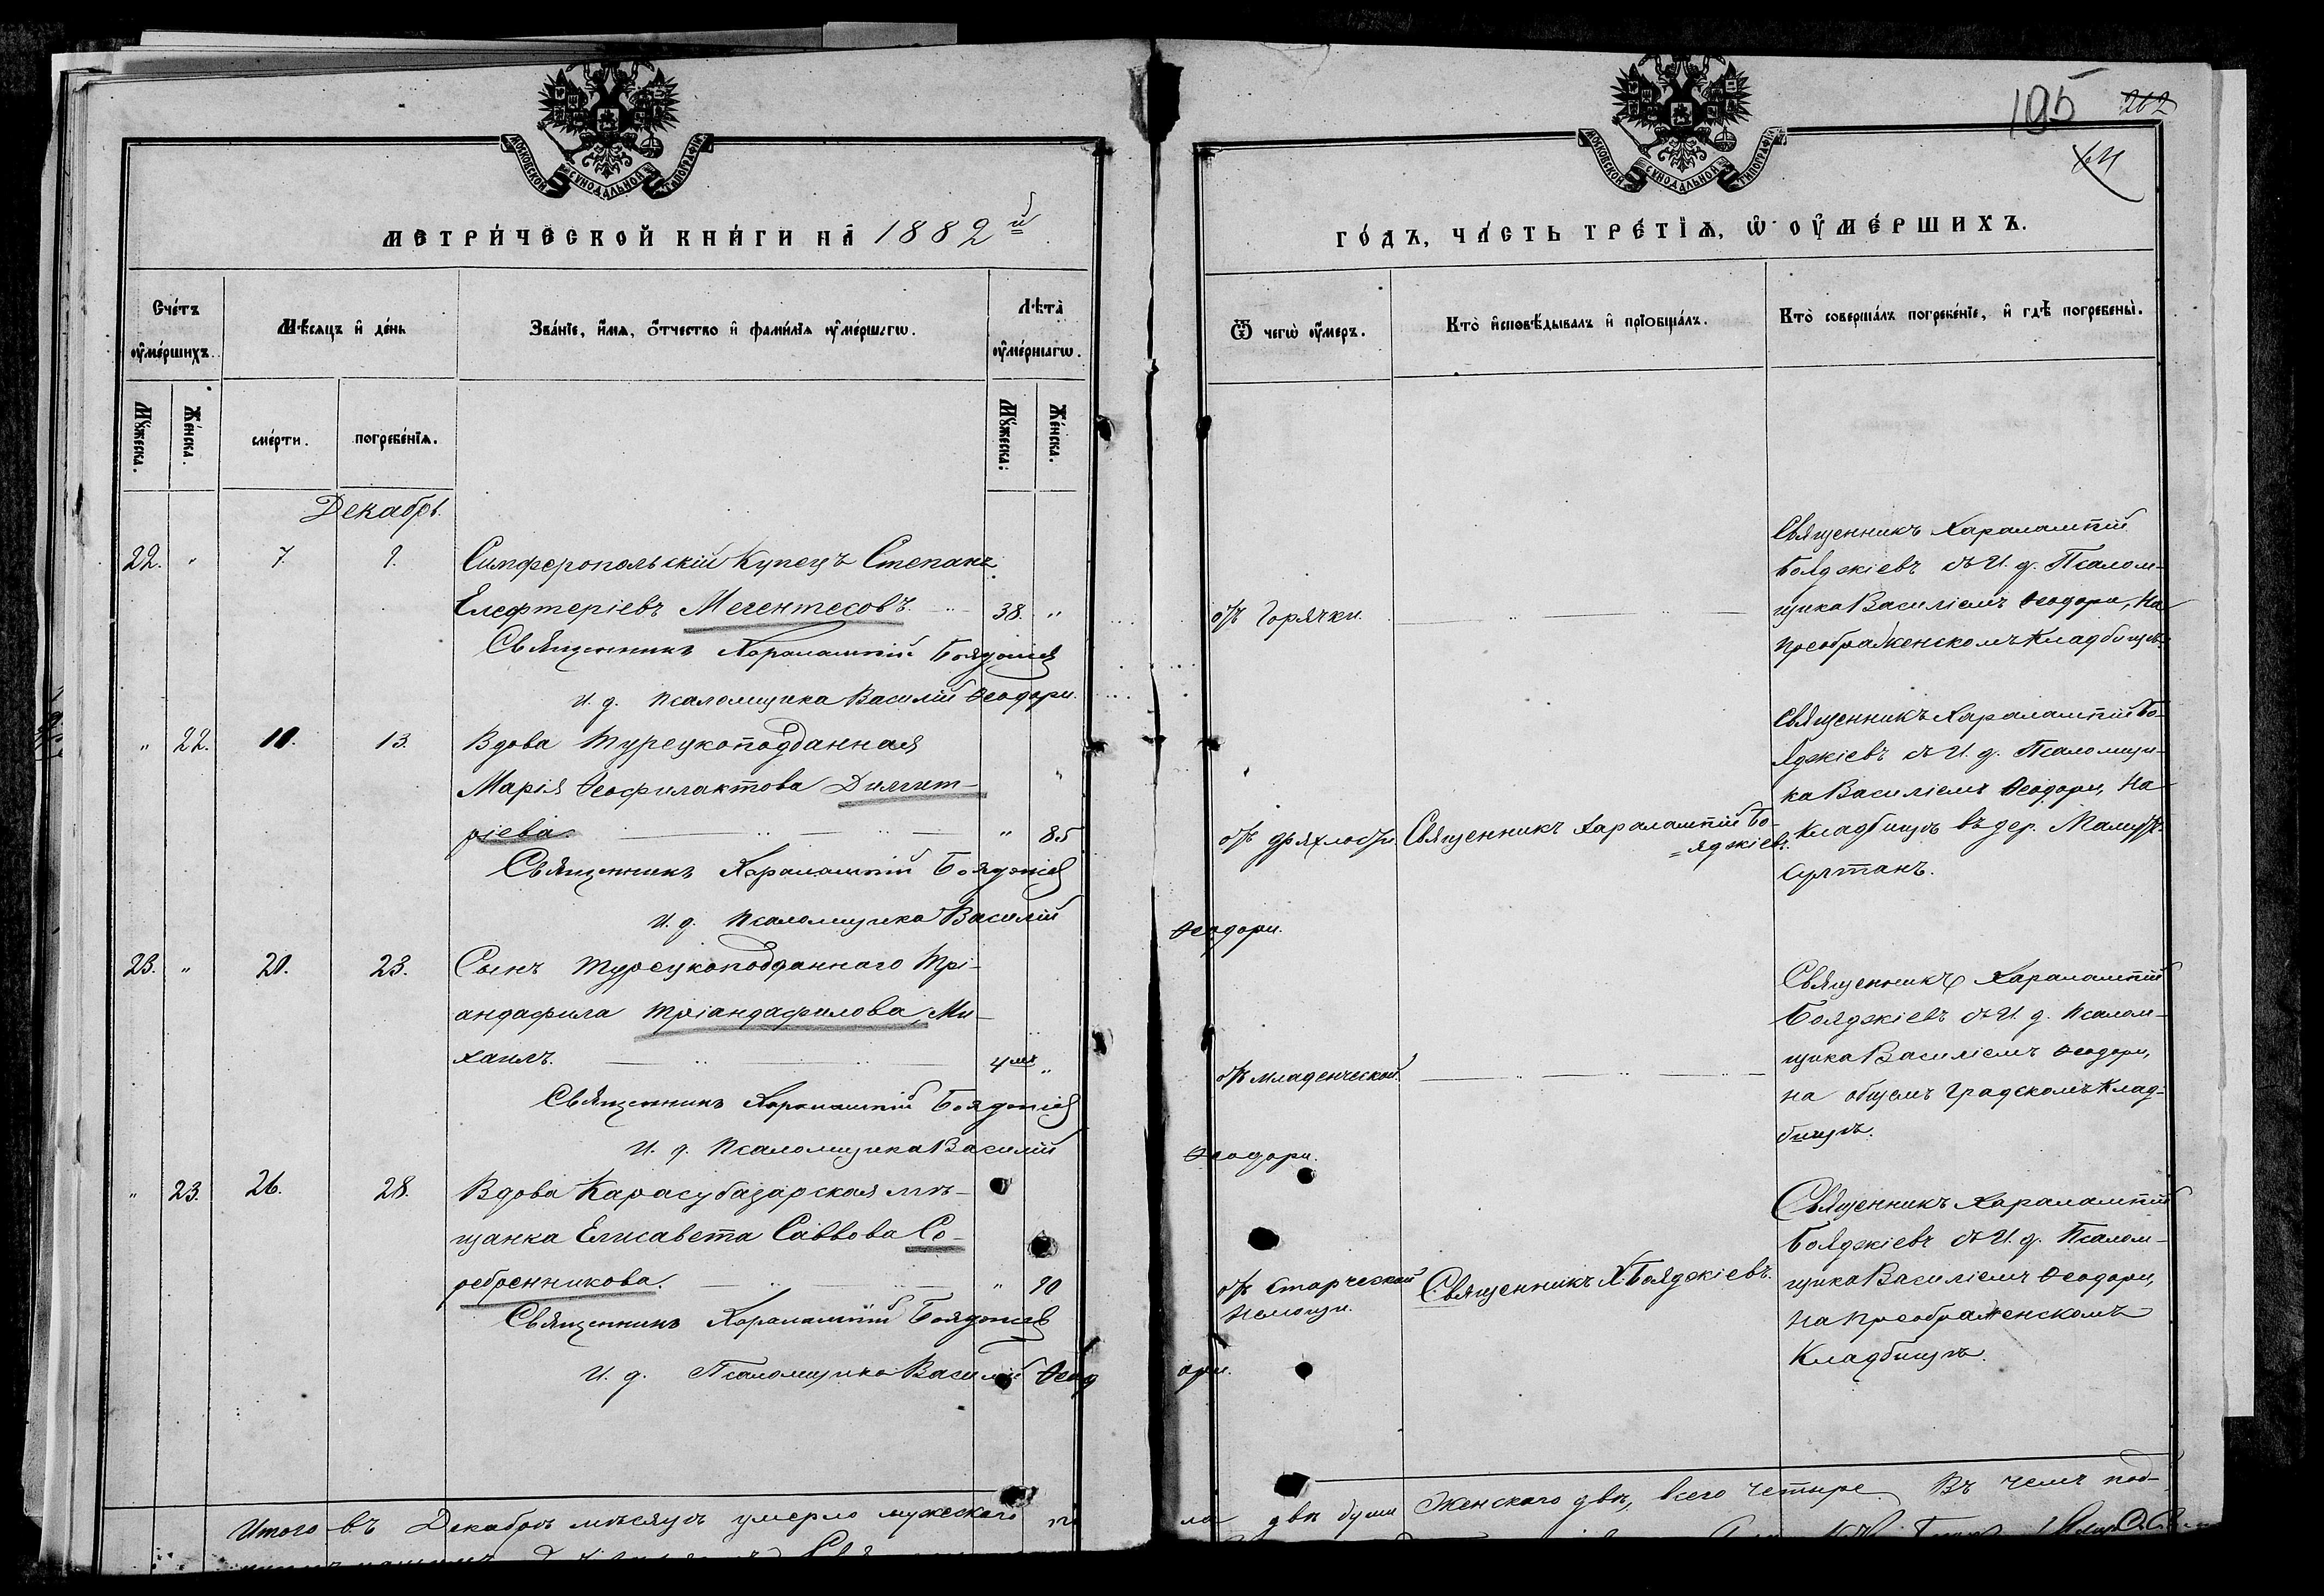 МОСКОВСКОЙ СѴНОДАЛЬНОЙ ТИПОГРАФІИ
МЕТРИ́ЧЕСКОЙ КНИ́ГИ НА̀ 1882й
Сче́тъ оу҆ме́ршихъ.
Мѣ́сяцъ и҆ де́нь
Зва́нїе, и҆́мя, о҆́тчество и҆ фами́лїя оу҆ме́ршагѡ.
Лѣ̑та̀ оу҆ме́ршагѡ.
Мꙋ́жеска.
Же́нска.
сме́рти.
погребе́нїѧ.
Мꙋ́жеска.
Же́нска.
Декабрь.
22. " 7. 9. Симферопольскій Купецъ Степанъ
Елефтеріевъ Мегентесовъ. 38. "
Священникъ Харалампій Бояджіев
И. д. псаломщика Василій Ѳеодори.
" 22. 10. 13. Вдова турецкоподданная
Марія Ѳеофилактова Димит-
ріева. " 85
Священникъ Харалампій Бояджіев
И. д. псаломщика Василій Ѳеодори.
23. " 20. 23. Сынъ турецкоподданнаго Трі-
андафила Тріандафилова, Ми-
хаилъ. 4 мѣ "
Священникъ Харалампій Бояджіев
И. д. псаломщика Василій Ѳеодори.
" 23. 26. 28. Вдова Карасубазарская мѣ-
щанка Елисавета Саввова Се-
ребренникова. " 90
Священникъ Харалампій Бояджіев
И. д. Псаломщика Василій Ѳеодори.
Итого въ Декабрѣ мѣсяцѣ умерло мужескаго по
МОСКОВСКОЙ СѴНОДАЛЬНОЙ ТИПОГРАФІИ
195 262
64
ГО́ДЪ, ЧА́СТЬ ТРЕ́ТЇѦ, Ѡ҆ ОУ҆МЕ́РШИХЪ.
Ѿ чегѡ̀ оу҆́меръ.
Кто̀ и҆сповѣ́дывалъ и҆ прїѡбща́лъ.
Кто̀ соверша́лъ погребе́нїе, и҆ гдѣ̀ погребены̀.
отъ Горячки.
Священникъ Харалампій
Бояджіевъ съ И. д. Псалом-
щика Василіемъ Ѳеодори, на
преображенскомъ Кладбищѣ.
отъ дряхлости.
Священникъ Харалампій Бо-
=яджіевъ.
Священникъ Харалампій Бо-
яджіевъ съ И. д. Псаломщи-
ка Василіемъ Ѳеодори, на
Кладбищѣ въ дер. Мамутъ
Султанъ.
отъ младенческой.
Священникъ Харалампій
Бояджіевъ съ И. д. псалом-
щика Василіемъ Ѳеодори,
на общемъ градскомъ Клад-
бищѣ.
отъ Старческой
немощи.
Священникъ Х. Бояджіевъ.
Священникъ Харалампій
Бояджіевъ съ И. д. Псалом-
щика Василіемъ Ѳеодори,
на преображенскомъ
Кладбищѣ.
ла двѣ души Женскаго двѣ, всего четыре. Въ чемъ под-